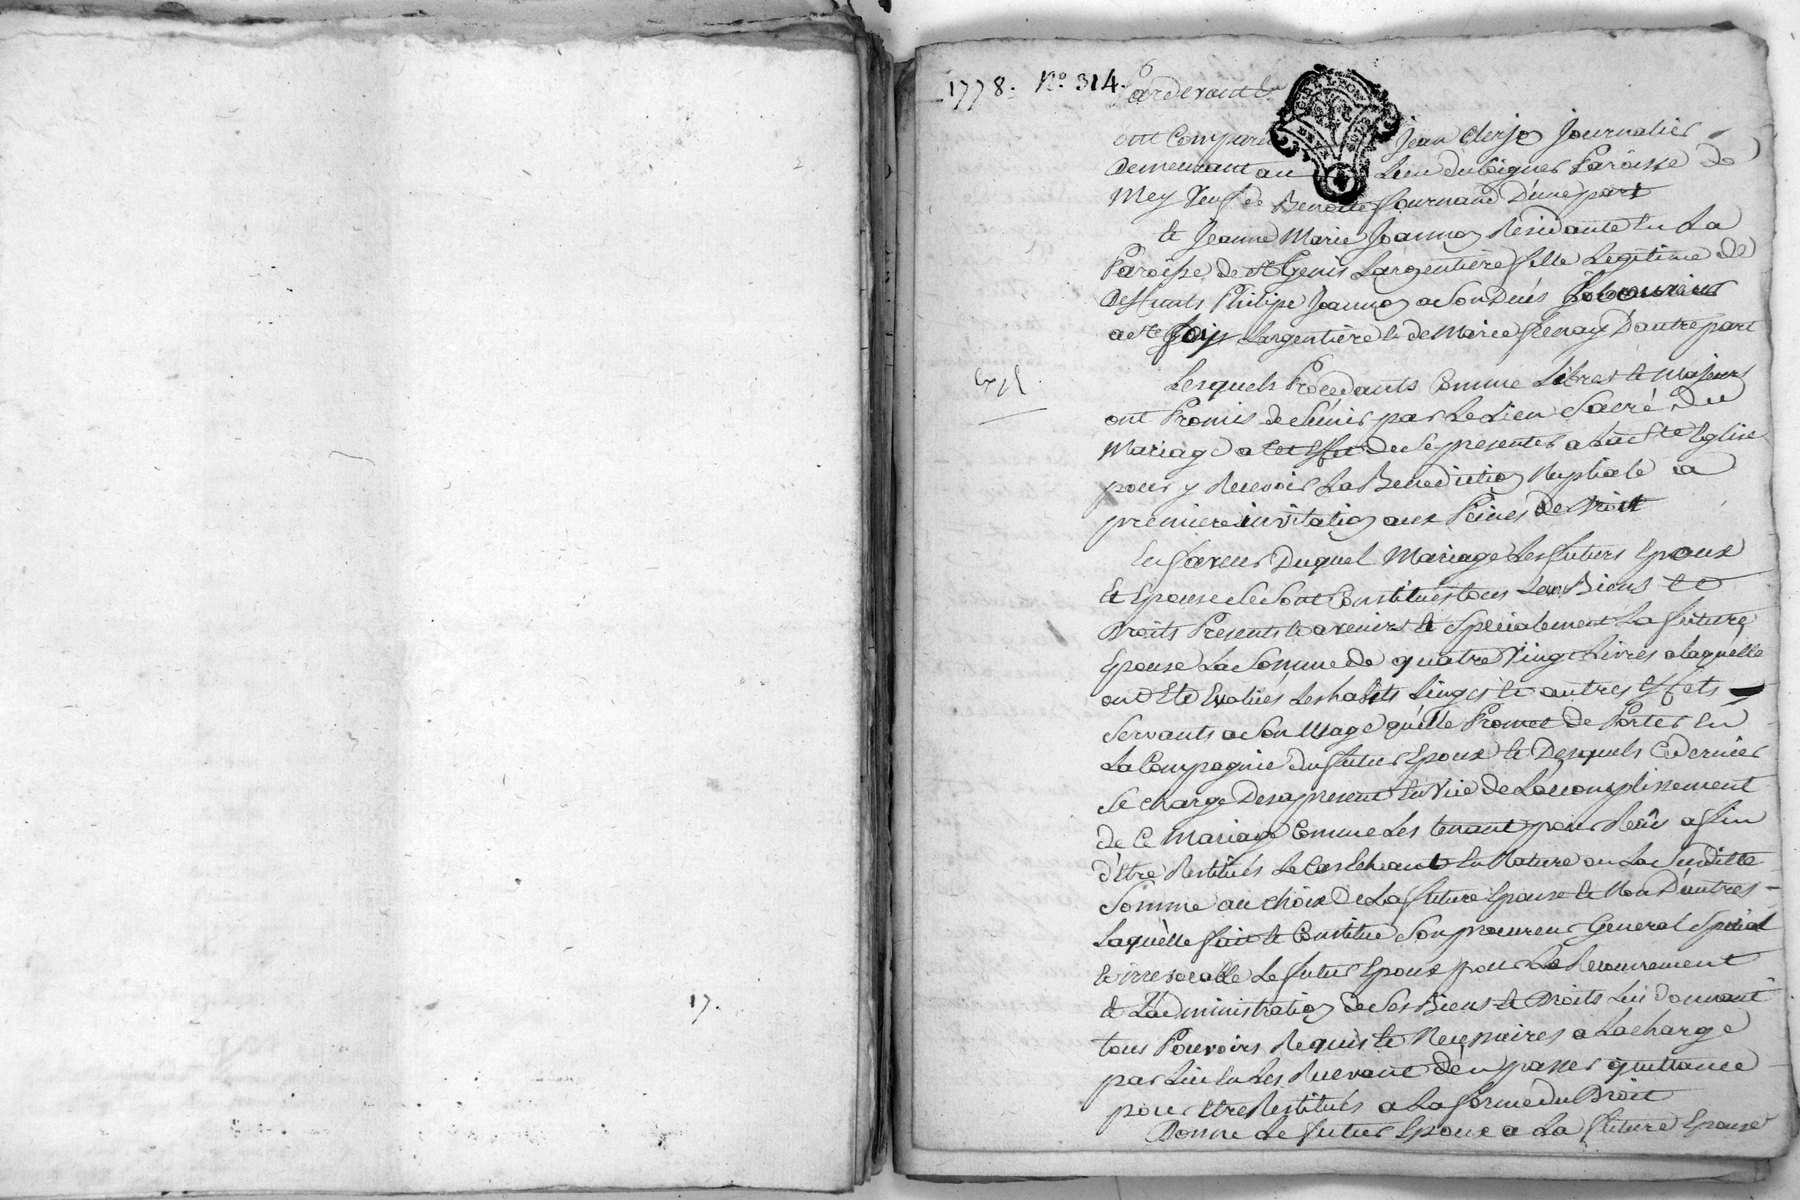 17.
1778. No. 314.
Pardevant
ont Comparu Jean Clerjon Journalier
Demeurant au Lieu du Paroisse de
Mey Veuf de Benoite fournand D'une part
Et Jeanne Marie Joannon Residante En La
Paroisse de st Genis Largentiere fille Legitime de
Deffunts Philipe Joannon a Son Decés Laboureur
a ste foy Largentiere & de Marie D'autre part
Lesquels Procedants Comme Libres & Majeurs
ont Promis de S'unir par Le Lien Sacré Du
Mariage a Cet Effet De Se presenter a La Ste Eglise
pour y Recevoir La Benediction Nuptiale a
premiere invitation aux Peines de Droit
En faveur Duquel Mariage Les futurs Epoux
Et Epouse Se Sont Constitués tous Leurs Biens Et
Droits Presents & avenirs & Specialement La future
Epouse La Somme de quatre Vingt Livres a laquelle
ont Eté Evalués Les habits Linges & autres Effets
Servants a Son Usage qu'elle Promet de Porter En
La Compagnie du futur Epoux & Desquels Ce Dernier
Se charge Desapresent En Vüe de L'accomplissement
de Ce Mariage Comme Les tenant pour Reçus afin
d'Etre Restitués Le Cas Echeant En Nature ou La Susditte
Somme au choix De La future Epouse & Non D'autres
Laquelle fait & Constitue Son procureur General Special
& irrevocable Le futur Epoux pour Le Recouvrement
& L'administration de Ses Biens & Droits Lui Donnant
tous Pouvoirs Requis & Necessaires a La charge
par Lui En Les Recevant d'En passer quittance
pour Etre Restitués a La forme du Droit
Donne Le futur Epoux a La future Epouse